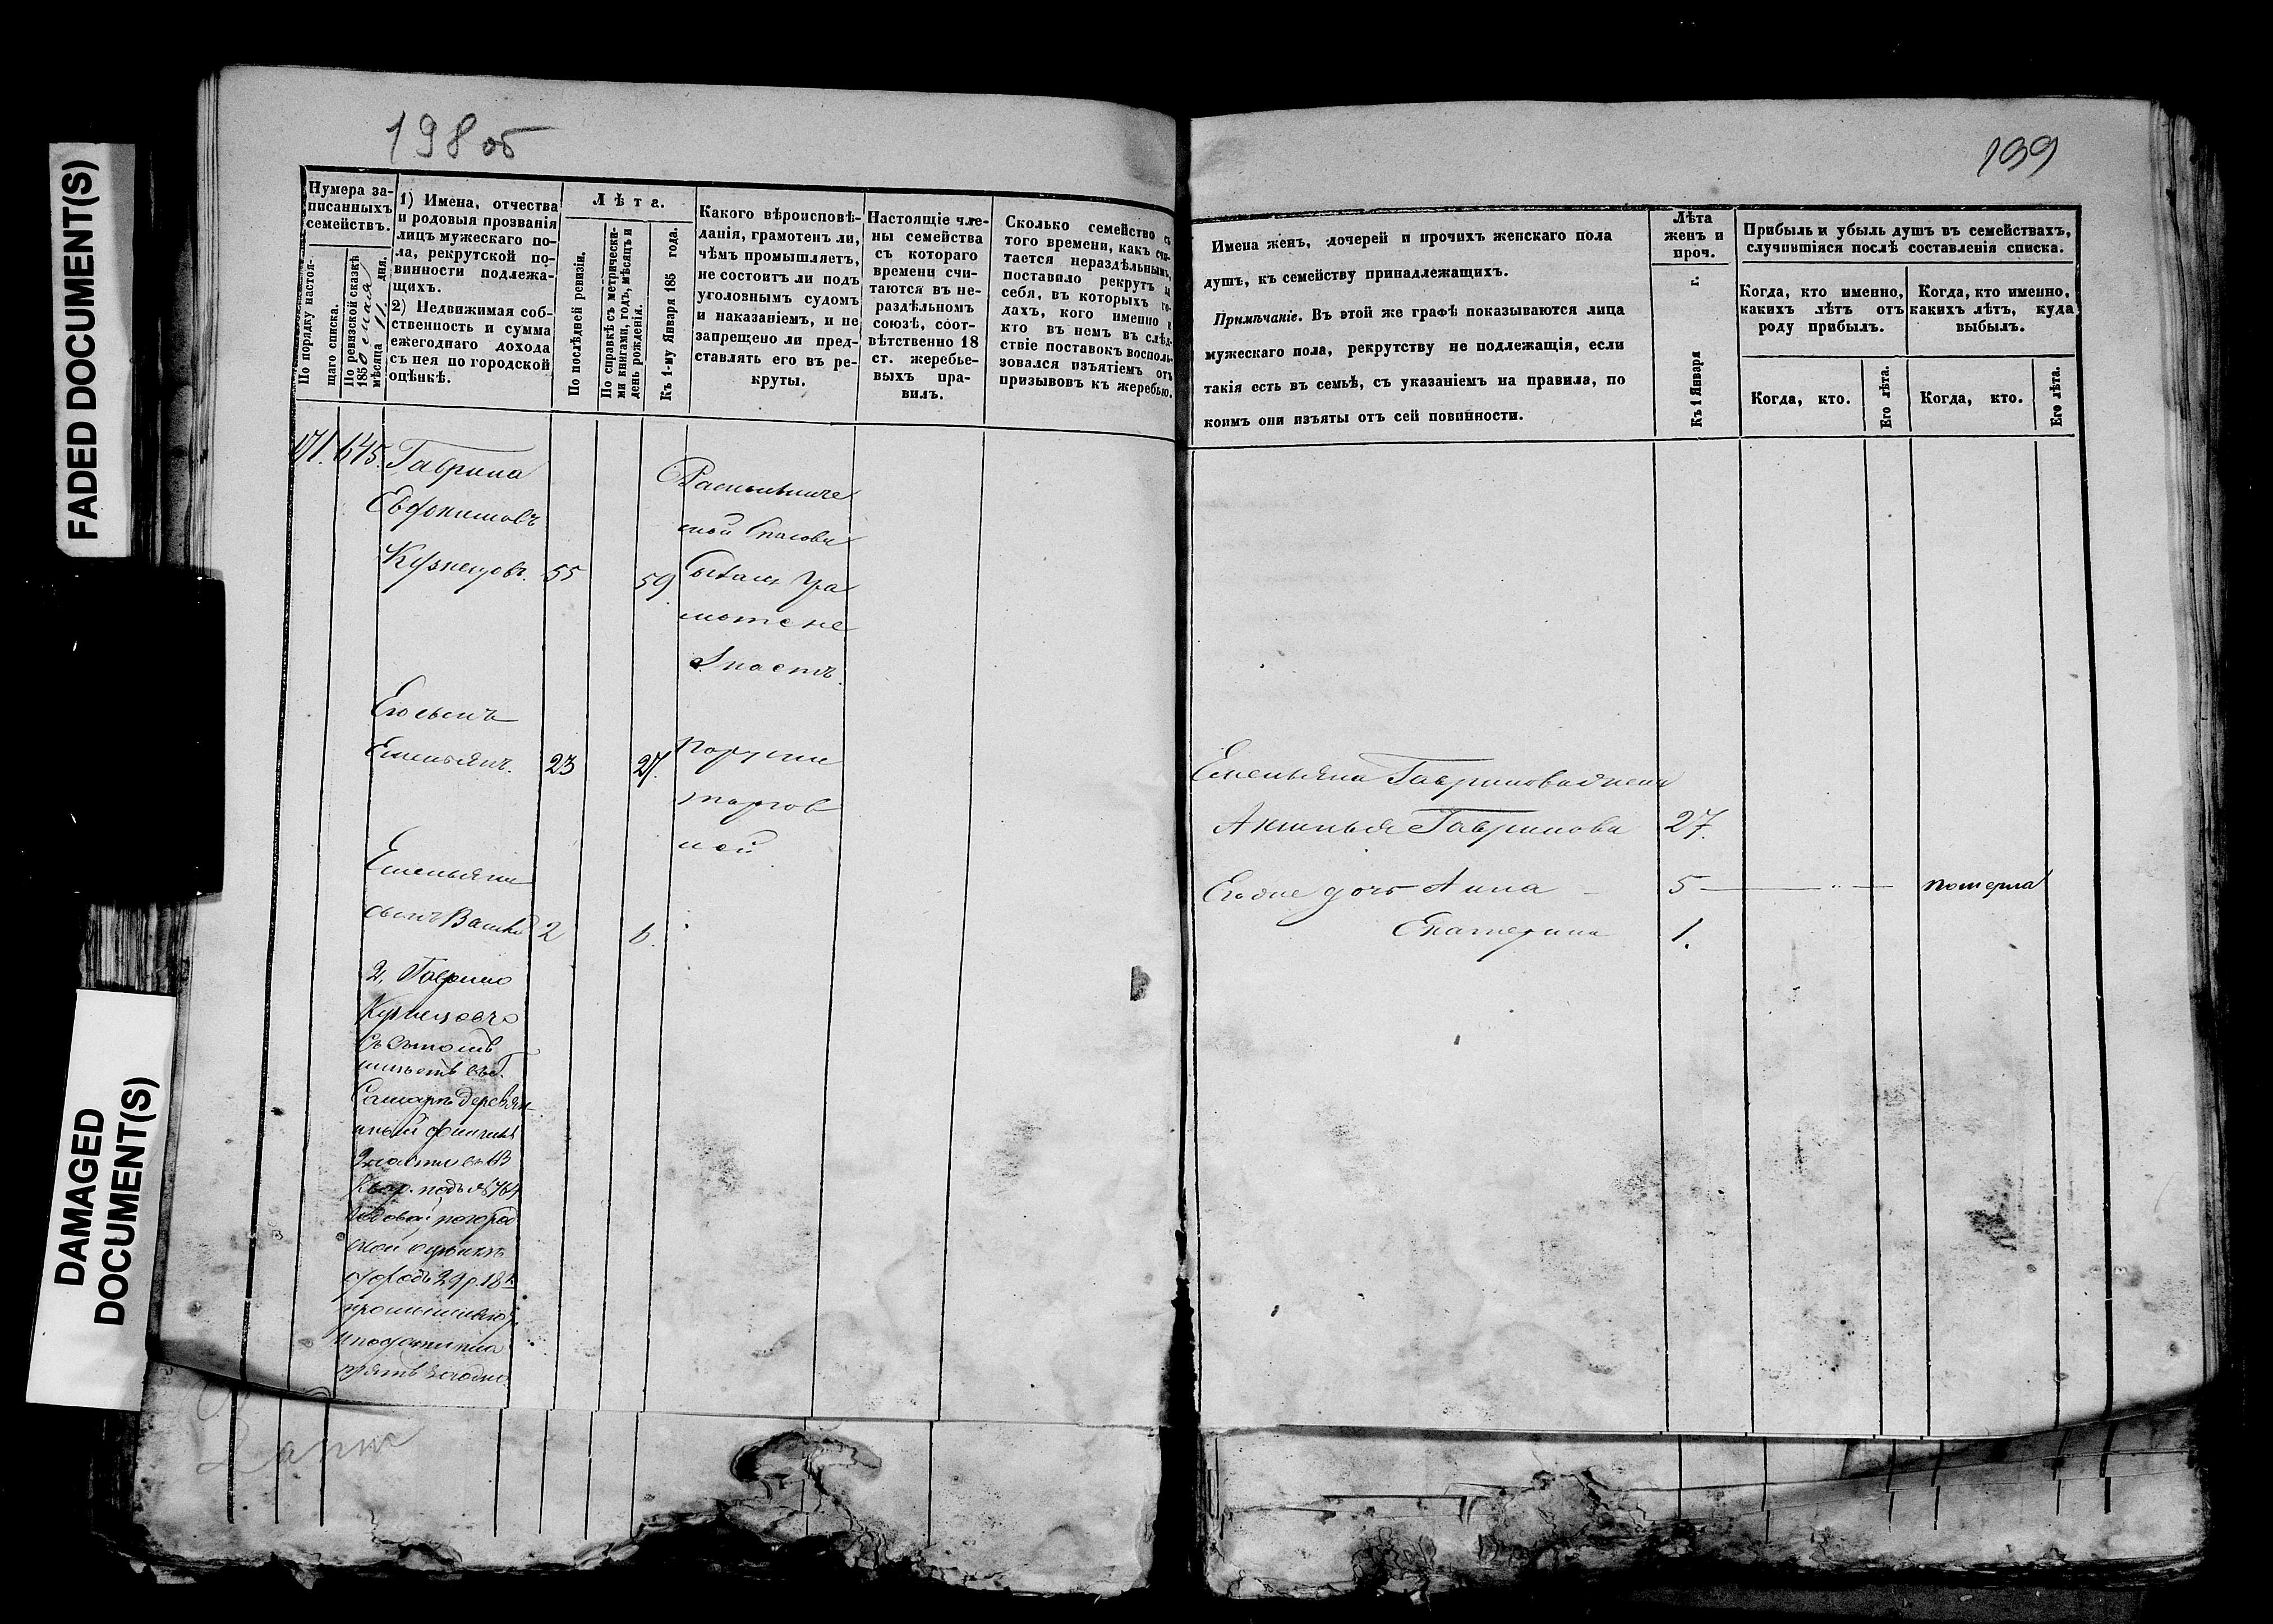 FADED DOCUMENT(S)
DAMAGED
DOCUMENT(S)
198 об
Нумера за-
писанныхъ
семействъ.
По порядку настоя-
щаго списка.
По ревизской сказкѣ
1850 мая
мѣсяца 11. дня.
1) Имена, отчества
и родовыя прозванія
лицъ мужескаго по-
ла, рекрутской по-
винности подлежа-
щихъ.
2) Недвижимая соб-
ственность и сумма
ежегоднаго дохода
съ нея по городской
оцѣнкѣ.
Лѣта.
По послѣдней ревизіи.
По справкѣ съ метрически-
ми книгами, годъ, мѣсяцъ и
день рожденія.
Къ 1-му Января 185 года.
Какого вѣроисповѣ-
данія, грамотенъ ли,
чѣмъ промышляетъ,
не состоитъ ли подъ
уголовнымъ судомъ
и наказаніемъ, и не
запрещено ли пред-
ставлять его въ ре-
круты.
Настоящіе чле-
ны семейства
съ котораго
времени счи-
таются въ не-
раздѣльномъ
союзѣ, соот-
вѣтственно 18
ст. жеребье-
выхъ пра-
вилъ.
Сколько семейство съ
того времени, какъ счи-
тается нераздѣльнымъ,
поставило рекрутъ и
себя, въ которыхъ го-
дахъ, кого именно и
кто въ немъ въ слѣд-
ствіе поставокъ восполь-
зовался изъятіемъ отъ
призывовъ къ жеребью.
171. 645. Гаврила
Евфимовъ
Кузнецовъ. 55 59
Раскольниче
ской Спасова
Согласи Гра
мотене
Знаетъ.
Его сынъ
Емельянъ. 23 27.
торгов
лей
Емельяна
сынъ Василій 2 6.
2, Гаврило
Кузнецовъ
Самаре деревян
ный флигель
Квар. подъ № 764
29 р. 18 к
139
Имена женъ, дочерей и прочихъ женскаго пола
душъ, къ семейству принадлежащихъ.
Примѣчаніе. Въ этой же графѣ показываются лица
мужескаго пола, рекрутству не подлежащія, если
такія есть въ семьѣ, съ указаніемъ на правила, по
коимъ они изъяты отъ сей повинности.
Лѣта
женъ и
проч.
Къ 1 Января г.
Прибыль и убыль душъ въ семействахъ,
случившіяся послѣ составленія списка.
Когда, кто именно,
какихъ лѣтъ отъ
роду прибылъ.
Когда, кто именно,
какихъ лѣтъ, куда
выбылъ.
Когда, кто.
Его лѣта.
Когда, кто.
Его лѣта.
Емельяна Гаврилова жена
Аксинья Гаврилова 27.
Его же дочь Анна 5 померла
Екатерина 1.